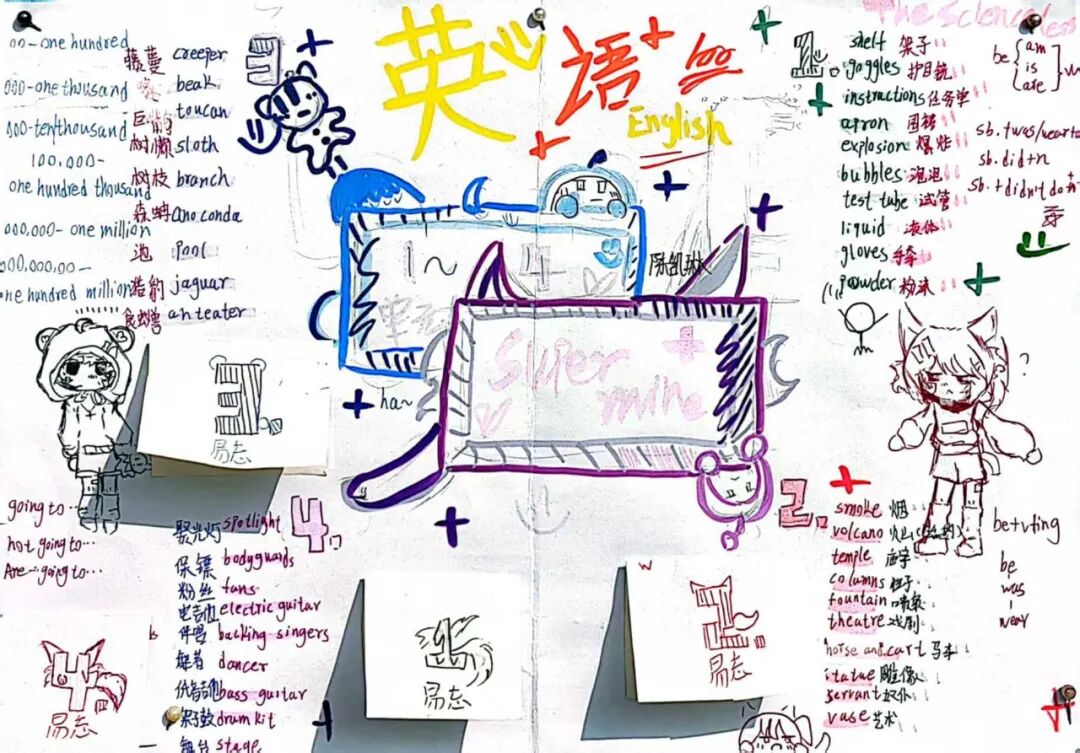 英语
100
English
The Science
3
one hundred
藤蔓 creeper
beak
one thousand
toucan
ten thousand
树懒 sloth
100,000-
树枝 branch
one hundred thousand
anoconda
000,000- one million
池 pool
000,000,00-
one hundred million
jaguar
食蚁兽 anteater
1.
shelf 架子
goggles 护目镜
instructions 任务单
apron 围裙
explosion 爆炸
bubbles 泡泡
test tube 试管
liquid 液体
gloves 手套
powder 粉沫
be { am
is
are
sb.
sb. did+n
sb. + didn't do+n
1~4
陈凯琳
Super
mine
ha~
?
3
易志
going to...
not going to...
Are...going to...
4
聚光灯 spotlight
保镖 bodyguards
粉丝 fans
电吉他 electric guitar
伴唱 backing singers
舞者 dancer
bass guitar
架子鼓 drum kit
舞台 stage
is
4
易志
1
易志
w
2
易志
2
smoke 烟
volcano 火山
temple 庙宇
columns 柱子
fountain 喷泉
theatre 戏剧
horse and cart 马车
statue 雕像
servant 奴仆
vase 艺术
be+ving
be
was
wear